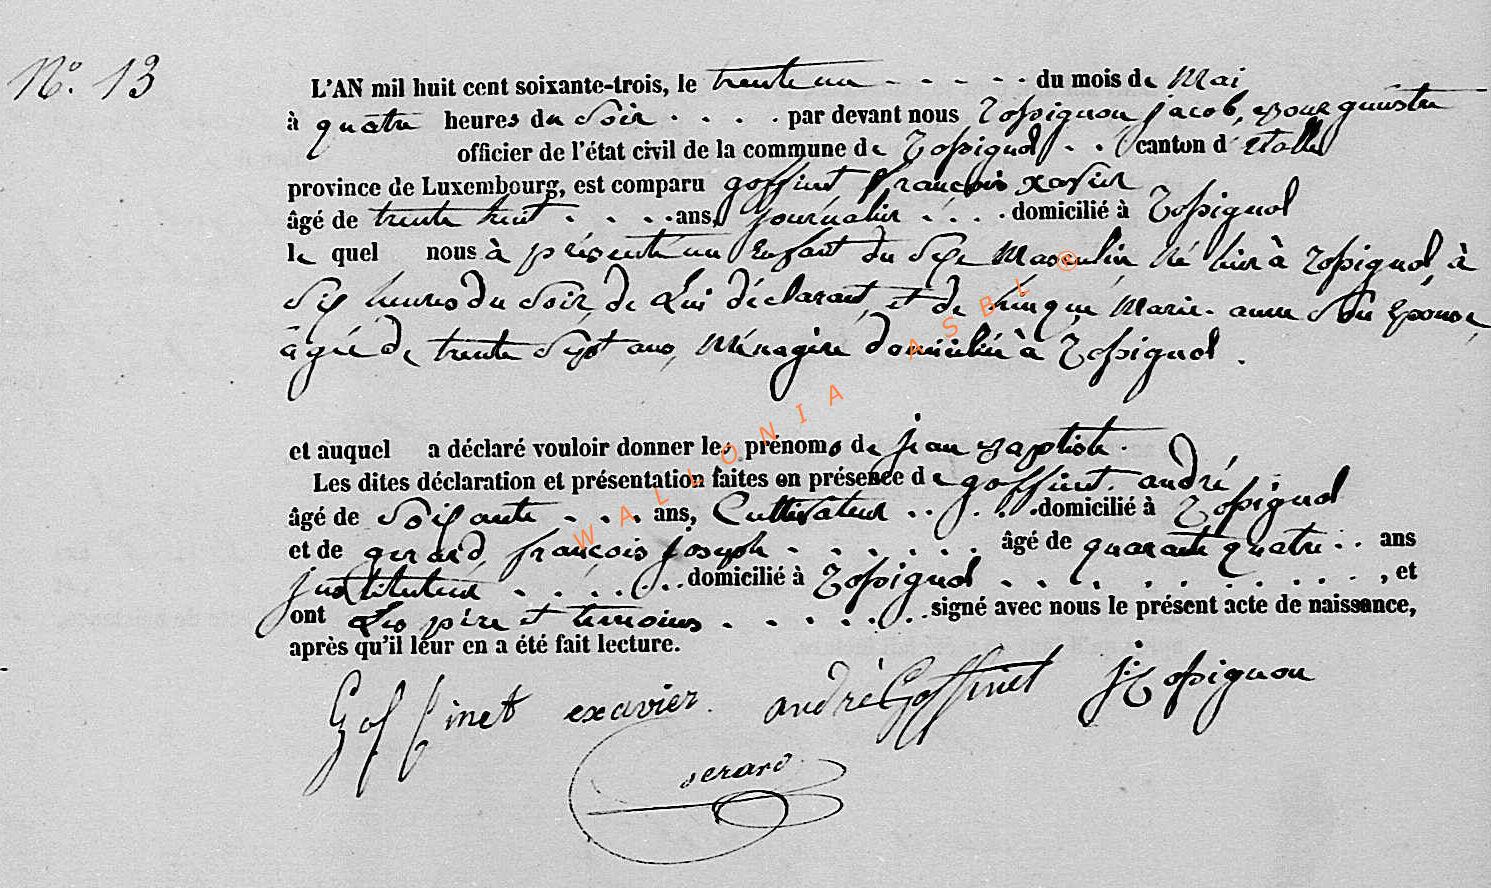 N.o 13
L'AN mil huit cent soixante-trois, le trente un - - - - - du mois de Mai
à quatre heures du Soir . . . . par devant nous Rossignon jacob,
officier de l'état civil de la commune de Rossignol . . canton d'etalle
province de Luxembourg, est comparu goffinet françois xavier
âgé de trente huit . . . . ans, journalier . . . . domicilié à Rossignol
le quel nous à présenté un Enfant du Sexe Masculin né hier à Rossignol, à
Six heures du Soir, de Lui déclarant, et de Marie-anne Son Epouse,
agée de trente Sept ans, Ménagère domiciliée à Rossignol.
et auquel a déclaré vouloir donner les prénoms de jean Baptiste.
Les dites déclaration et présentation faites en présence de goffinet andré
âgé de Soixante . . . ans, Cultivateur . . . . . domicilié à Rossignol
et de gerard françois joseph . . . . . . âgé de quarante quatre . . ans
justituteur . . . . . . domicilié à Rossignol . . . . . . . . . . , et
ont Les père et temoins . . . . . . signé avec nous le présent acte de naissance,
après qu'il leur en a été fait lecture.
Goffinet exavier. andré Goffinet j: Rossignon
gerard
WALLONIA ASBL ®